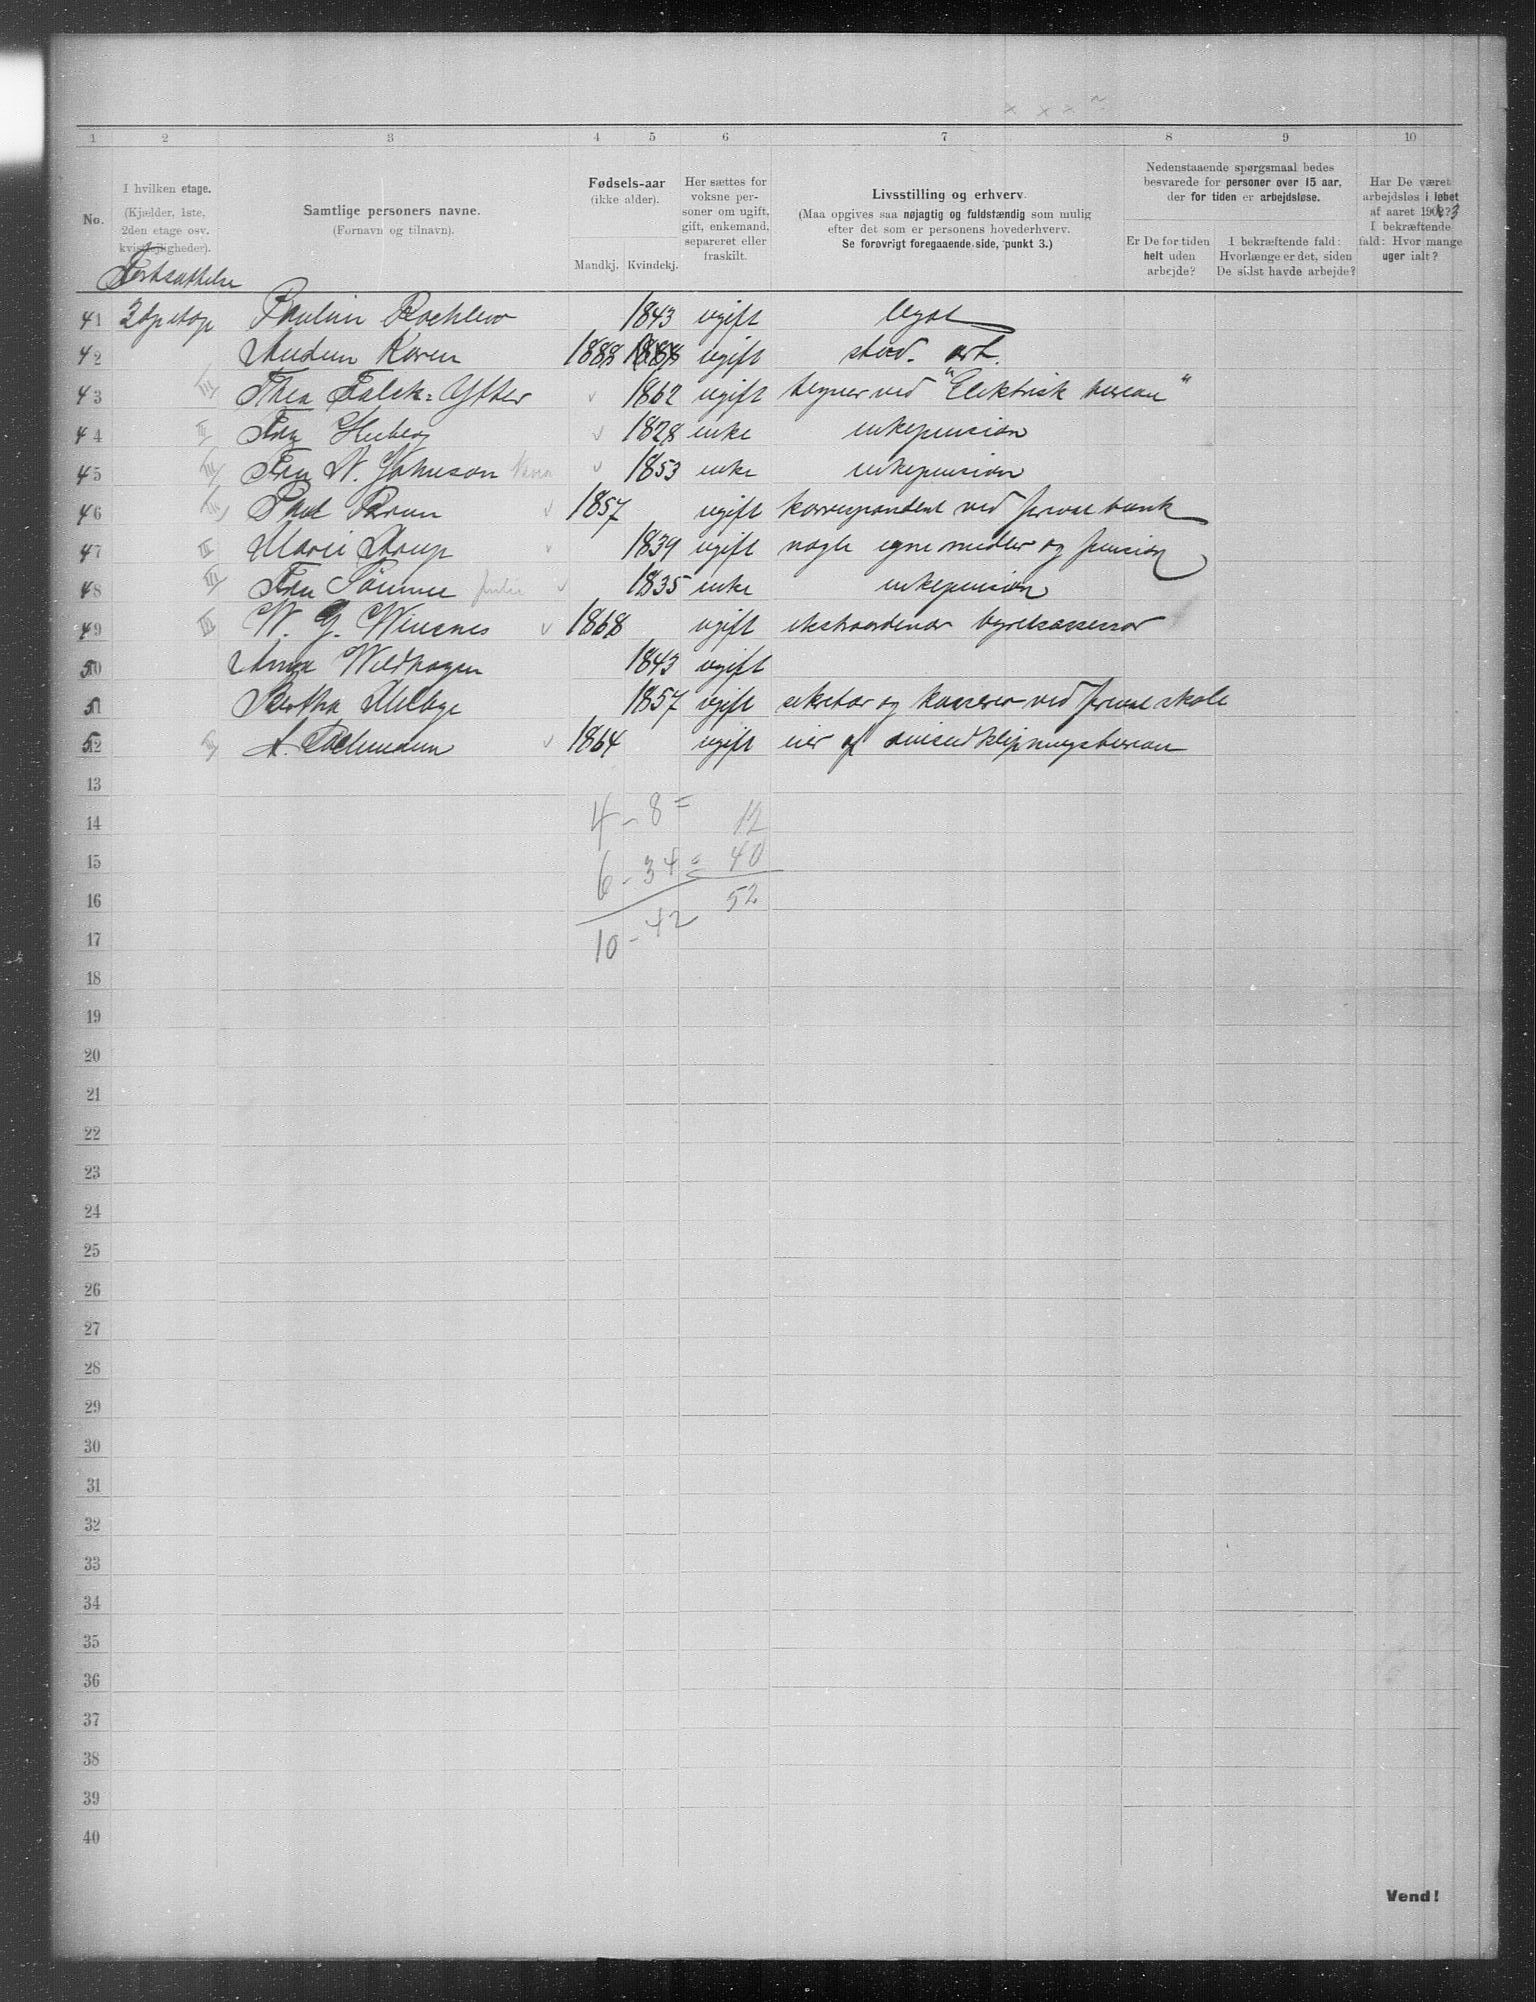 1 2 3 4 5 6 7 8 9 10
No.
I hvilken etage.
(Kjælder, 1ste,
2den etage osv.
kvistleiligheder).
Samtlige personers navne.
(Fornavn og tilnavn).
Fødsels-aar
(ikke alder).
Mandkj. Kvindekj.
Her sættes for
voksne per-
soner om ugift,
gift, enkemand,
separeret eller
fraskilt.
Livsstilling og erhverv.
(Maa opgives saa nøjagtig og fuldstændig som mulig
efter det som er personens hovederhverv.
Se forøvrigt foregaaende side, punkt 3.)
Nedenstaaende spørgsmaal bedes
besvarede for personer over 15 aar,
der for tiden er arbejdsløse.
Er De for tiden
helt uden
arbejde?
I bekræftende fald:
Hvorlænge er det, siden
De sidst havde arbejde?
Har De været
arbejdsløs i løbet
af aaret 1903?
I bekræftende
fald: Hvor mange
uger ialt?
Fortsættelse
41 1843 ugift legat
42 Koren 1888 ugift stud. art.
43 III Thea Falck-Ytter 1862 ugift tegner ved "Elektrisk bureau"
44 II Heiberg 1828 enke enkepension
45 III Fru N. Johnson 1853 enke enkepension
46 III 1857 ugift korrespondent ved privat bank
47 II Marie 1839 ugift nogle egne midler og pension
48 III Fru 1835 enke enkepension
49 III W. G. Winsnes 1868 ugift ekstraordinær byretsassessor
50 Anna Wildhagen 1843 ugift
51 Bertha Melbye 1857 ugift sekretær og kasserer ved privat skole
52 III A. 1864 ugift eier af avisudklipningsbureau
13
4 - 8 = 12
14
6 - 34 = 40
15
52
16
10 - 42
17
18
19
20
21
22
23
24
25
26
27
28
29
30
31
32
33
34
35
36
37
38
39
40
Vend!